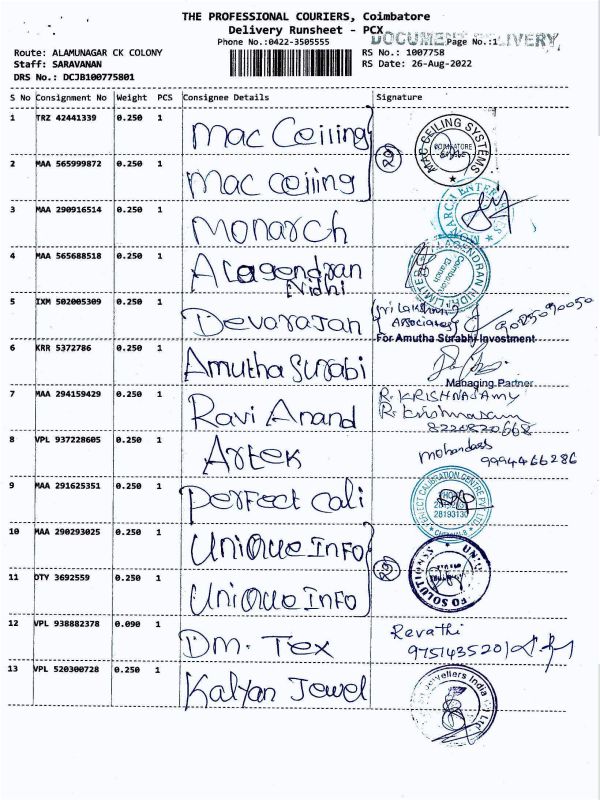 THE PROFESSIONAL COURIERS, Coimbatore
Delivery Runsheet - PCX
DOCUMENT DELIVERY
Phone No.:0422-3505555 Page No.:1
Route: ALAMUNAGAR CK COLONY RS No.: 1007758
Staff: SARAVANAN RS Date: 26-Aug-2022
DRS No.: DCJB100775801
S No Consignment No Weight PCS Consignee Details Signature
1 TRZ 42441339 0.250 1 Mac Ceiling
MAC CEILING SYSTEMS
COIMBATORE
2 MAA 565999872 0.250 1 Mac Ceiling
3 MAA 290916514 0.250 1 Monarch
MONARCH ENTERPRISES
4 MAA 565688518 0.250 1 Alagendran
Nidhi
ALAGENDRAN NIDHI LIMITED
Coimbatore
Branch
5 IXM 502005309 0.250 1 Devarajan
Sri Lakshmi
Associates
9025090050
For Amutha Surabhi Investment
6 KRR 5372786 0.250 1 Amutha Surabi
Managing Partner
7 MAA 294159429 0.250 1 Ravi Anand
R. KRISHNASAMY
8 VPL 937228605 0.250 1 Artek
9994466286
9 MAA 291625351 0.250 1 Perfect Cali
PERFECT CALIBRATION CENTRE PVT LTD
28193130
10 MAA 290293025 0.250 1 Unique Info
11 DTY 3692559 0.250 1 Unique Info
12 VPL 938882378 0.090 1 DM. Tex
Revathi
9751435201
13 VPL 520300728 0.250 1 Kalyan Jewel